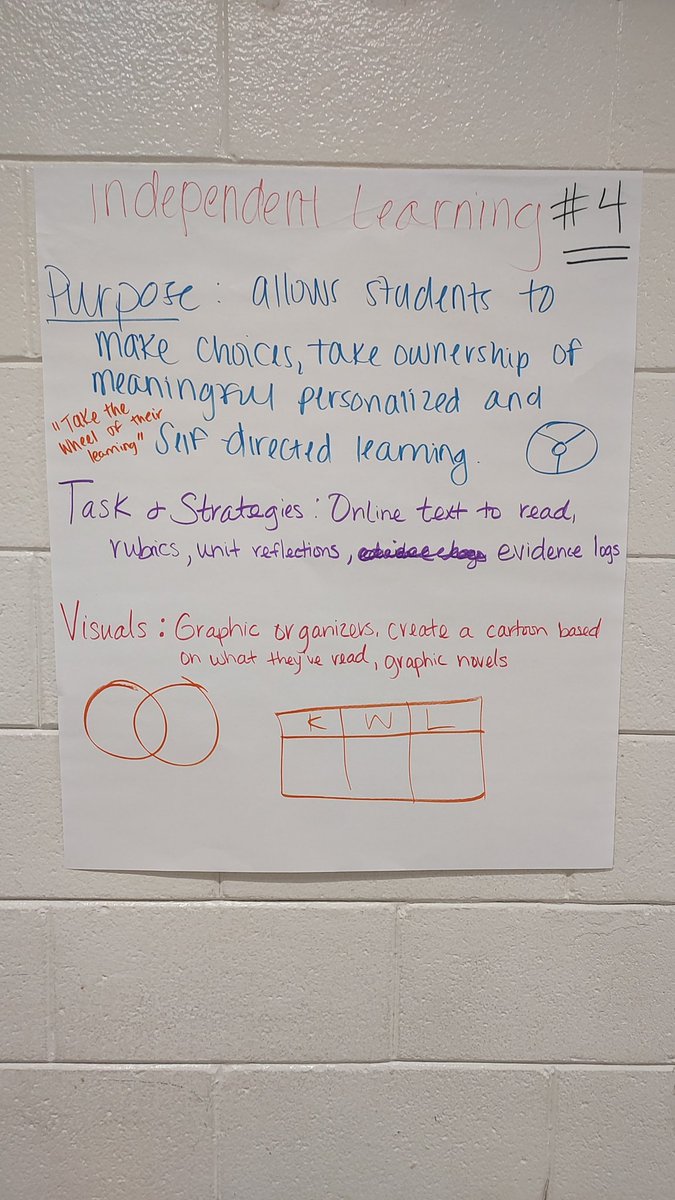 Independent Learning #4
Purpose: allows students to
make choices, take ownership of
meaningful personalized and
"Take the
wheel of their
learning"
Self directed learning.
Task & Strategies: Online text to read,
rubrics, unit reflections, evidence logs
Visuals: Graphic organizers, create a cartoon based
on what they've read, graphic novels
K W L